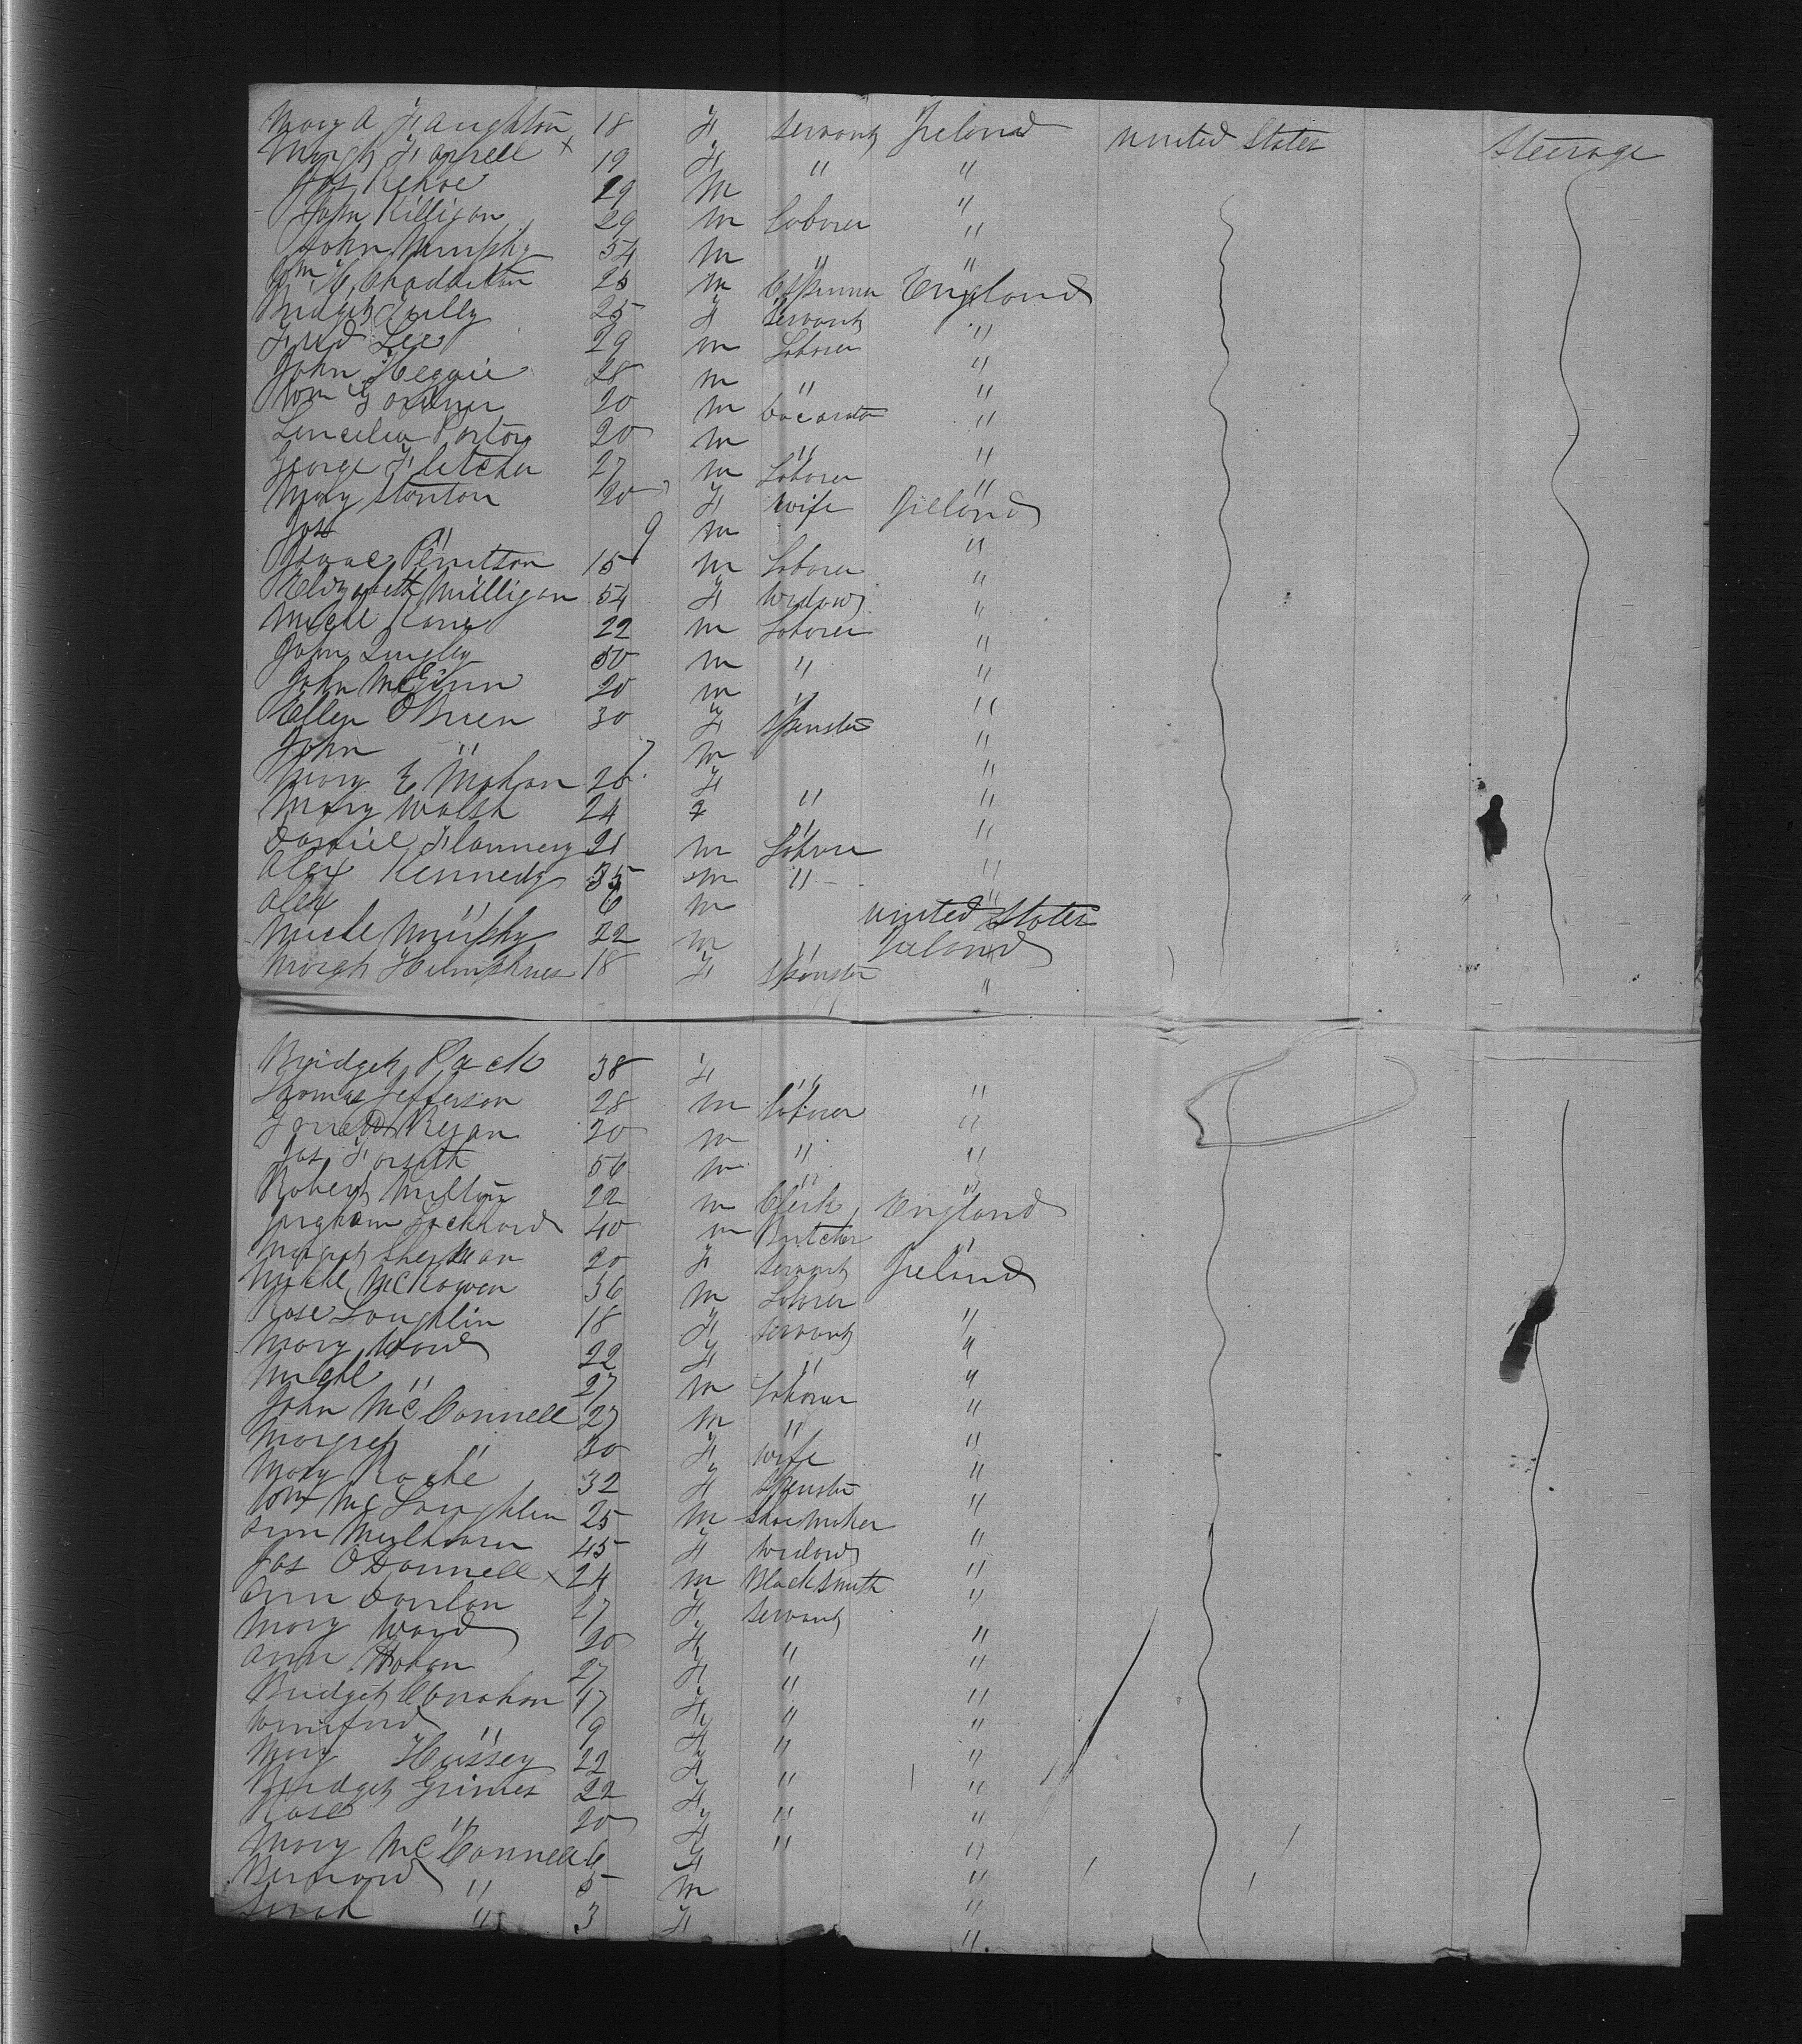 Mary A Haughton 18 F Servant Ireland United States Steerage
Margt Farrell x 19 F " "
Jas Kehoe 29 M "
John Killigan 29 M Laborer "
John Murphy 54 M " "
Wm H Chadderton 25 M England
Bridget Tully 25 F Servant "
Fred Lee 29 M Laborer "
John Heggie 28 M " "
Wm Gardner 20 M "
Porton 20 M " "
George Fletcher 27 M Laborer "
Mary Stanton 20 F Wife Ireland
Jos " 9 M "
Isaac 15 M Laborer "
Elizabeth Milligan 54 F Widow "
Michl Kane 22 M Laborer "
John 50 M " "
John McGinn 20 M " "
Ellen O'Brien 30 F Spinster "
John " 7 M "
Mary E Mahan 20 F " "
Mary Walsh 24 F " "
Daniel Flannery 21 M Laborer "
Alex Kennedy 35 M " "
Alex " 6 M United States
Michl Murphy 22 M " Ireland
Margt Humphries 18 F Spinster "
Bridget Pack 38 F " "
Thomas Jefferson 28 M Laborer "
Ryan 20 M " "
Jas Forsyth 56 M " "
Robert Milton 22 M Clerk England
Lockhard 40 M Butcher "
Margret 20 F Servant Ireland
Michl McKowen 36 M Laborer "
Rose Loughlin 18 F Servant "
Mary Ward 22 F " "
Michl " 27 M Laborer "
John McConnell 27 M " "
Margret " 30 F Wife "
Mary Roche 32 F Spinster "
Wm McLoughlin 25 M Shoe Maker "
Ann 45 F Widow "
Jas O'Donnell x 24 M Blacksmith "
Ann Conlon 27 F Servant "
Mary Ward 20 F " "
Ann Hohan 27 F " "
Bridget 17 F " "
Winifred " 9 F " "
Mary Hussey 22 F " "
Bridget Grimes 22 F " "
Rose " 20 F " "
Mary McConnell 6 F "
Bernard " 5 M "
Sarah " 3 F "